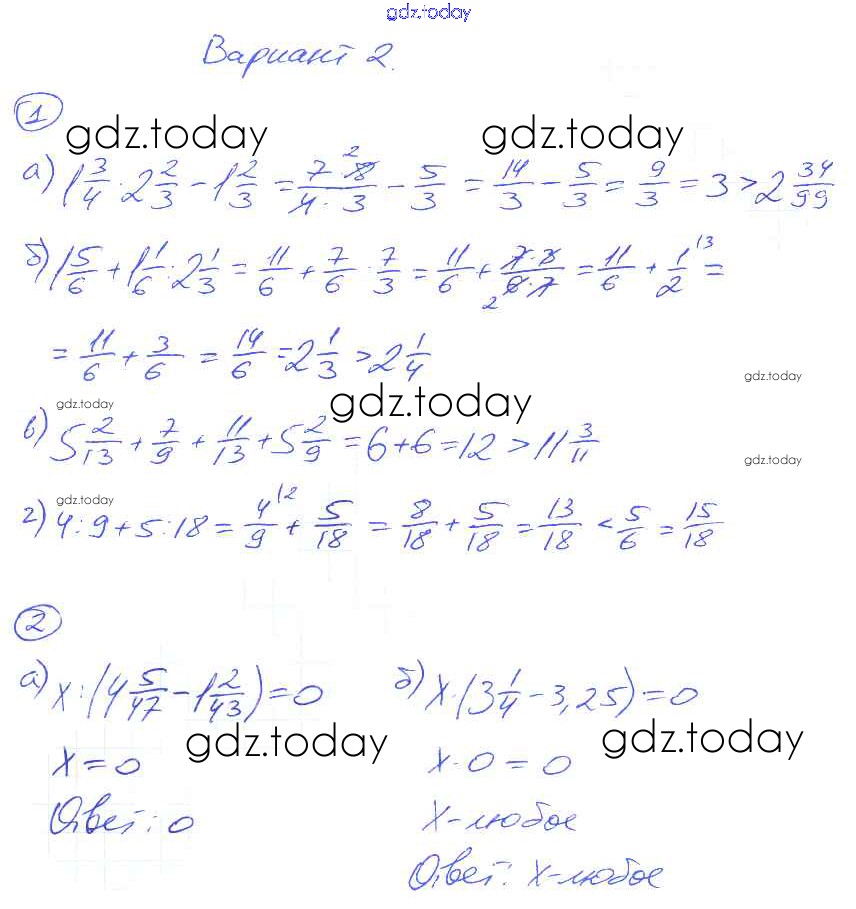 gdz.today
Вариант 2.
1
gdz.today gdz.today
а) 1 3/4 · 2 2/3 - 1 2/3 = 7 · 8 2 / 4 · 3 - 5/3 = 14/3 - 5/3 = 9/3 = 3 > 2 34/99
б) 1 5/6 + 1 1/6 : 2 1/3 = 11/6 + 7/6 · 7/3 = 11/6 + 7·3 / 2 6·7 = 11/6 + 1/2 ⁽³ =
= 11/6 + 3/6 = 14/6 = 2 1/3 > 2 1/4
gdz.today
gdz.today gdz.today
в) 5 2/13 + 7/9 + 11/13 + 5 2/9 = 6 + 6 = 12 > 11 3/11
gdz.today
gdz.today
г) 4 : 9 + 5 : 18 = 4/9 ⁽² + 5/18 = 8/18 + 5/18 = 13/18 < 5/6 = 15/18
2
а) x : (4 5/47 - 1 2/43) = 0
gdz.today
x = 0
Ответ: 0
б) x · (3 1/4 - 3,25) = 0
gdz.today
x · 0 = 0
x - любое
Ответ: x - любое